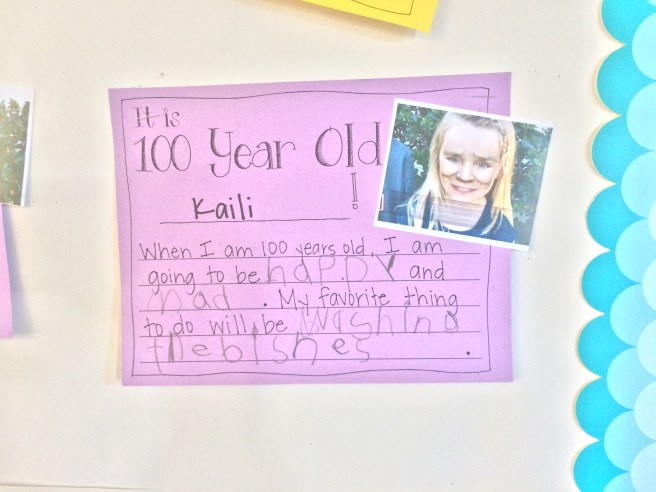 It is
100 Year Old
!
Kaili
When I am 100 years old, I am
going to be happy and
mad. My favorite thing
to do will be washing
the bishes.